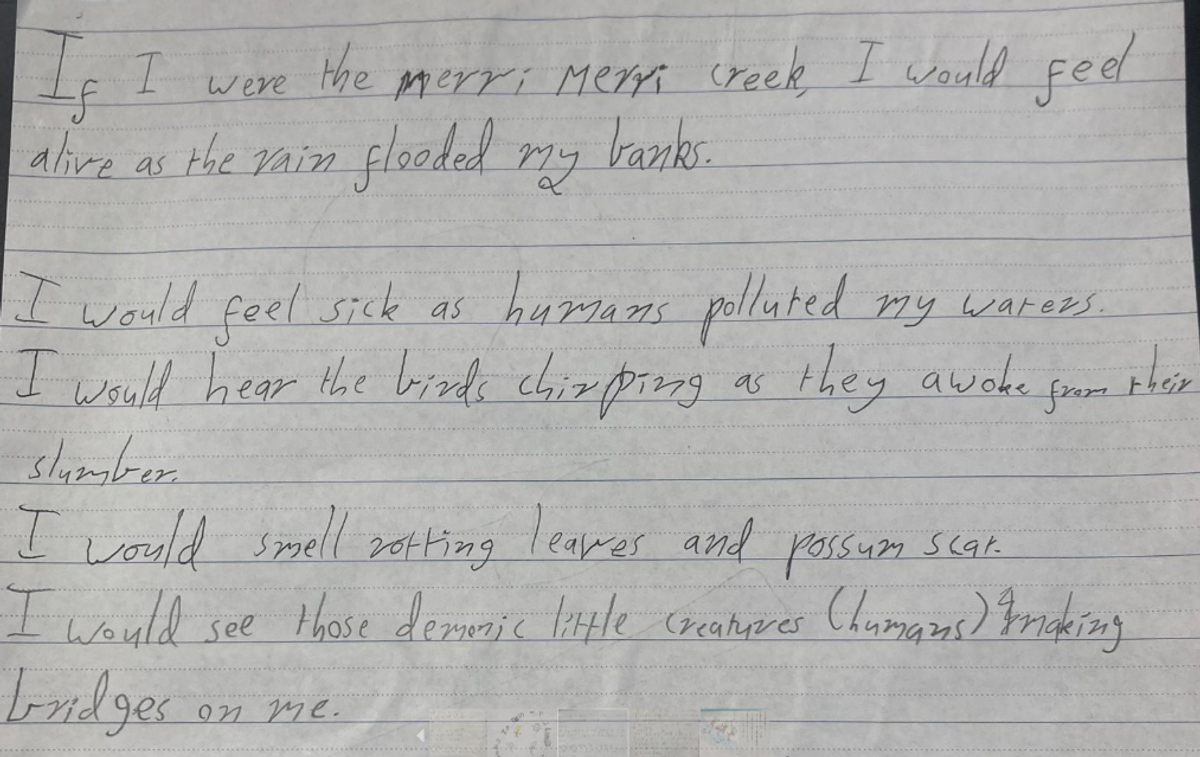 If I were the merri Merri creek, I would feel
alive as the rain flooded my banks.
I would feel sick as humans polluted my waters.
I would hear the birds chirping as they awoke from their
slumber.
I would smell rotting leaves and possum scat.
I would see those demonic little creatures (humans) making
bridges on me.